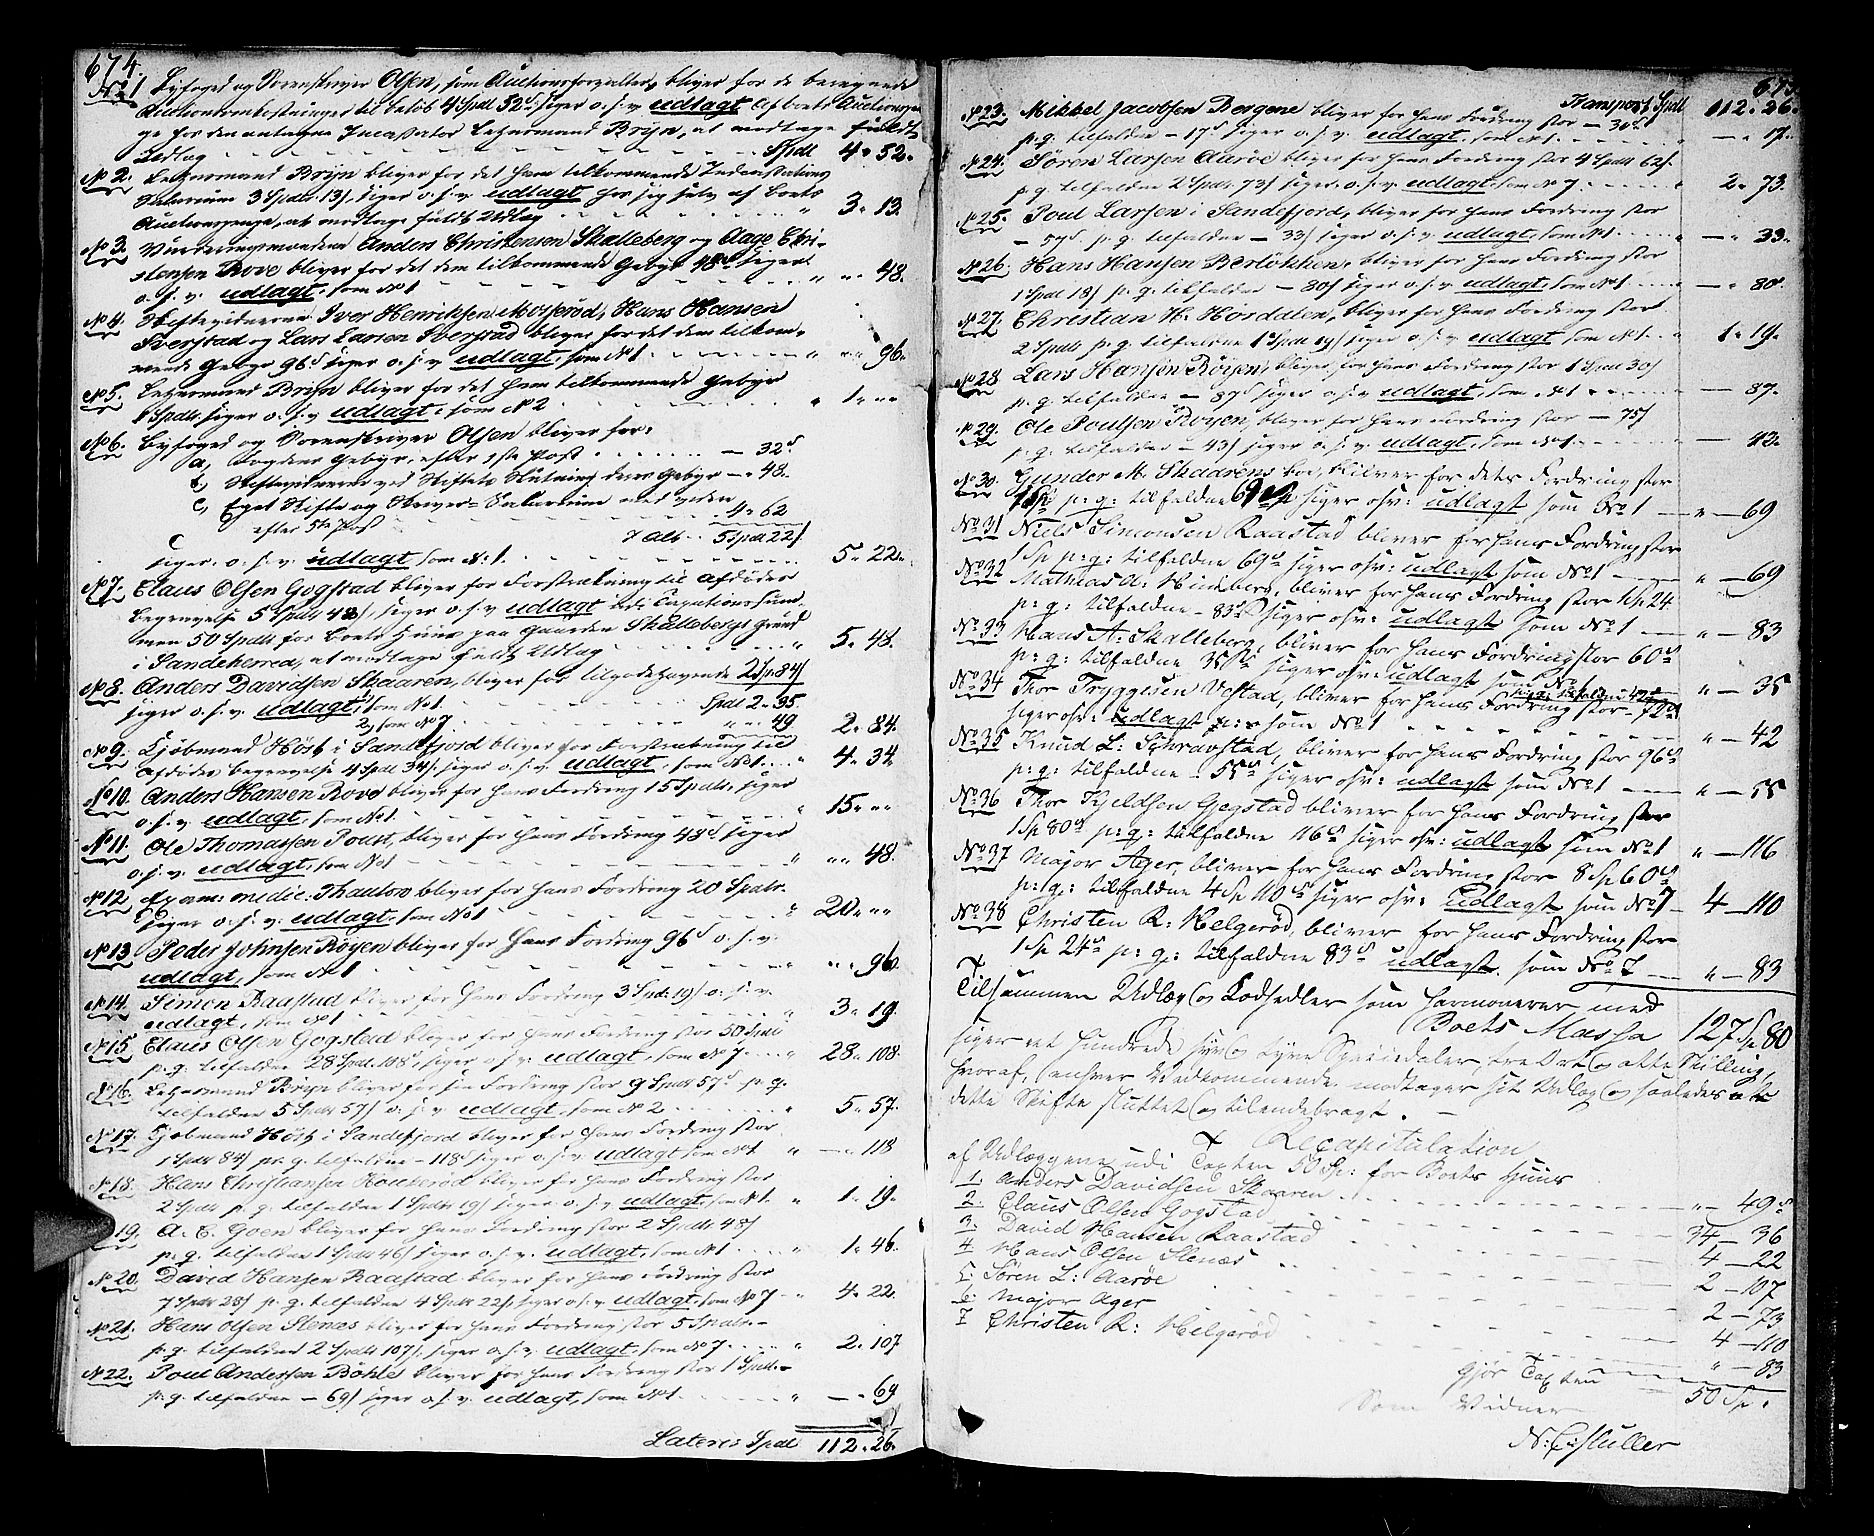 674.
No 1 Byfoged og Sorenskriver Olsen, som Auctionsforvalter, bliver for de beregnede
Auctionsomkostninger til beløb 4 Spdl 52s. siger o. s. v. udlagt af boets Auctionspen-
ge hos den antagne Incassator Lehnsmand Bryn, at modtage fuldt
Udlag - - - Spdl 4 " 52.
No 2. Lehnsmand Bryn bliver for det ham tilkommende Incassations
Salarium 3 Spdlr. 13s siger o. s. v. udlagt hos sig selv af boets
Auctionspenge, at modtage fuldt Udlag - - - " 3 " 13.
No 3. Vurderingsmændene Anders Christensen Skalleberg og Aage Chri-
stensen Rove bliver for det dem tilkommende Gebyr 48s siger
o. s. v. udlagt, som No 1 - - - " " " 48.
No 4. Skiftevidnerne Iver Henriksen Mosserød, Hans Hansen
Fverstad og Lars Larsen Fverstad bliver for det dem tilkom-
mende Gebyr 96s siger o. s. v. udlagt, som No 1 - - - " " " 96.
No 5. Lehnsmand Bryn bliver for det ham tilkommende Gebyr
1 Spdlr. siger o. s. v. udlagt, som No 2 - - - " 1 " " "
No 6. Byfoged og Sorenskriver Olsen bliver for:
a, Fogdens Gebyr, efter 1ste Post . . . . — 32s
b, Skiftevidnerne ved Skiftets Slutning deres Gebyr — " 48.
c, Eget Skifte og Skriver-Salarium med viden
efter 5te Post - - - 4 " 62
I Alt . . 5 Spdl 22s
siger o. s. v. udlagt, som No 1. - - - 5 " 22.
No 7. Claus Olsen Gogstad bliver for Forstrækning til Afdødes
Begravelse 5 Spdlr 48s, siger o. s. v. udlagt udi Taxationssum-
men 50 Spdlr for Boets Huus paa Gaarden Skallebergs Grund
i Sandeherred, at modtage fuldt Udlag - - - " 5 " 48.
No 8. Anders Davidsen Skaaren, bliver for tilgodehavende 2 Sp 84s
siger o. s. v. udlagt, 1, som No 1. - - - Spdl 2 " 35.
2, som No 7. - - - " " " 49 2 " 84.
No 9. Kjøbmand Høst i Sandefjord bliver for Forstrækning til
Afdødes Begravelse 4 Spdl 34s, siger o. s. v. udlagt, som No 1. . . . " 4 " 34.
No 10. Anders Hansen Rove bliver for hans Fordring 15 Spdlr. siger
o. s. v. udlagt, som No 1. - - - " 15 " " "
No 11. Ole Thomassen Poust, bliver for hans Fordring 48s siger
o. s. v. udlagt, som No 1 - - - " " " 48.
No 12. Exam: medic. Thaulow bliver for hans Fordring 20 Spdlr.
siger o. s. v. udlagt, som No 1 - - - " 20 " " "
No 13. Peder Johnsen Røyen bliver for hans Fordring 96s o. s. v.
udlagt, som No 1 - - - " " " 96.
No 14. Simon Raastad bliver for hans Fordring 3 Spd: 19s o: s. v.
udlagt, som No 1 - - - " 3 " 19.
No 15. Claus Olsen Gogstad bliver for hans Fordring stor 50 Spdl
p. q. tilfalden 28 Spdl. 108s, siger o. s. v. udlagt, som No 7. . . " 28 " 108.
No 16. Lehnsmand Bryn bliver for sin Fordring stor 9 Spdlr 57s p. q.
tilfalden 5 Spdlr 57s o. s. v. udlagt, som No 2 - - - " 5 " 57.
No 17. Kjøbmand Høst i Sandefjord bliver for hans Fordring stor
1 Spdlr 84s p. q. tilfalden — 118s siger o. s. v. udlagt som No 1 " — " 118
No 18. Hans Christiansen Houkerød bliver for hans Fordring stor
2 Spdlr p. q. tilfalden 1 Spdlr 19s siger o. s. v. udlagt, som No 1. " 1 " 19.
No 19. A. C. Goen bliver for hans Fordring stor 2 Spdlr 48s
p. q. tilfalden 1 Spdlr 46s siger o. s. v. udlagt, som No 1 . . . " 1 " 46.
No 20. David Hansen Raastad bliver for hans Fordring stor
7 Spdlr 28s p. q. tilfalden 4 Spdlr 22s, siger o. s. v. udlagt, som No 7 - " 4 " 22.
No 21. Hans Olsen Slenæs bliver for hans Fordring stor 5 Spdlr.-
p. q. tilfalden 2 Spdlr 107s. siger o. s. v. udlagt, som No 7 . . . " 2 " 107
No 22. Poul Andersen Böhle bliver for hans Fordring stor 1 Spdl.-
p. q. tilfalden — 69s siger o. s. v. udlagt, som No 1 . . . " — " 69
Lateris Spdl 112 " 26.
675.
Transport Spdl 112 " 26.
No 23. Mikkel Jacobsen Bergene bliver for hans Fordring stor — 30s
p. q. tilfalden — 17s siger o. s. v. udlagt, som No 1. - - - — " 17.
No 24. Søren Larsen Aarøe bliver for hans Fordring stor 4 Spdlr 62s.
p. q. tilfalden 2 Spdlr 73s siger o. s. v. udlagt, som No 7 - - - " 2 " 73.
No 25. Poul Larsen i Sandefjord, bliver for hans Fordring stor
— 57s p. q. tilfalden — 33s siger o. s. v. udlagt, som No 1 - - - " — " 33.
No 26. Hans Hansen Berløkken, bliver for hans Fordring stor
1 Spdl 18s p. q. tilfalden — 80s siger o. s. v. udlagt, som No 1 . . . — " 80.
No 27. Christian H. Hørdalen, bliver for hans Fordring stor
2 Spdlr p. q. tilfalden 1 Spdlr 19s siger o. s. v. udlagt som No 1. . . " 1 " 19.
No 28 Lars Hansen Røyen, bliver for hans Fordring stor 1 Spdl 30s
p. q. tilfalden — 87s siger o. s. v. udlagt, som No 1 - - - — 87.
No 29. Ole Poulsen Røyen, bliver for hans Fordring stor — 75s
p. q. tilfalden — 43s siger o. s. v. udlagt, som No 1. - - - — " 43.
No 30. Gunder M. Skaarens Boe, bliver for dets Fordring stor
1 Sp p: q: tilfaldne 69s siger osv: udlagt som No 1 — " — 69
No 31 Niels Simonsen Raastad bliver for hans Fordring stor
1 Sp p: q: tilfaldne 69s siger osv: udlagt som No 1 — " — 69
No 32 Mathias A: Hindberg, bliver for hans Fordring stor 1 Sp 24
p: q: tilfaldne - 83s siger osv: udlagt som No 1 — " — 83
No 33 Hans A: Skalleberg, bliver for hans Fordring stor 60s
p: q: tilfaldne 35s siger osv: udlagt som No 1 " — 35
No 34 Thor Tryggesen Vestad, bliver for hans Fordring stor - 72s
p: q: tilfaldne 42s
siger osv: udlagt som No 1 - - - " — 42
No 35 Knud L: Schravstad, bliver for hans Fordring stor 96s
p: q: tilfaldne - 55s siger osv: udlagt som No 1 — " — 55
No 36 Thor Kjeldsen Gogstad bliver for hans Fordring stor
1 Sp 80s p: q: tilfaldne 116s siger osv: udlagt som No 1 " — 116
No 37 Major Ager, bliver for hans Fordring stor 8 Sp 60s
p: q: tilfaldne 4 Sp 110s siger osv: udlagt som No 7 — 4 — 110
No 38 Christen R: Helgerød, bliver for hans Fordring stor
1 Sp 24s p: q: tilfaldne 83s udlagt. som No 7 — " — 83
Tilsammen Udlæg og Lodsedler som harmonerer med
Boets Massa 127 Sp 80
siger et hundrede syv og tyve Speciedaler, tre Ort og otte Skilling,
hvoraf, enhver Vedkommende modtager sit Udlæg og saaledes er
dette Skifte sluttet og tilendebragt. —
Recapitulation
af Udlæggene udi Taxten 50 Sp: for Boets Huus
1. Anders Davidsen Skaaren - - - " — 49s
2. Claus Olsen Gogstad - - - 34 — 36
3: David Hansen Raastad - - - 4 — 22
4 Hans Olsen Slenæs - - - 2 — 107
5: Søren L: Aarøe - - - 2 — 73
6: Major Ager - - - 4 — 110
7 Christen R: Helgerød - - - " — 83
Gjør Taxten 50 Sp.
Som Vidner
N: C: Muller